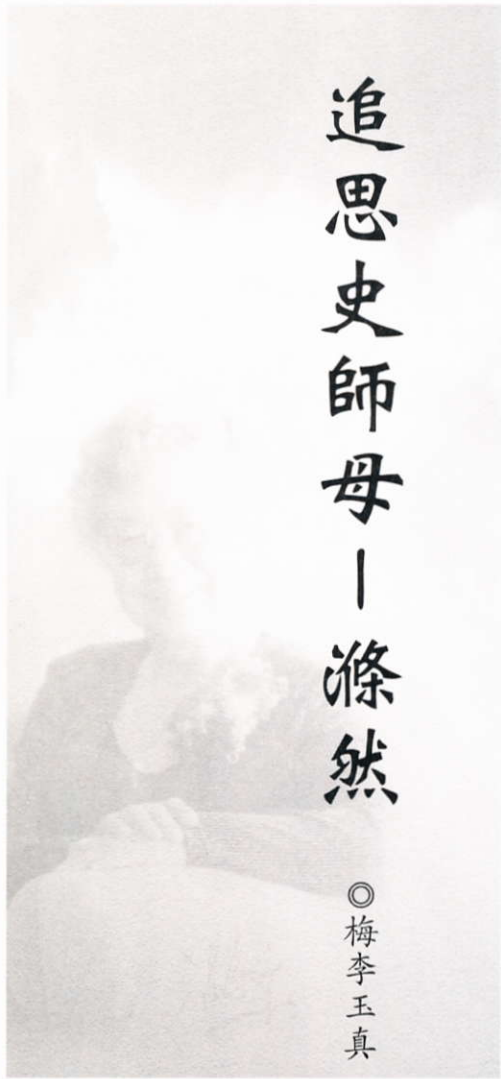 追思史師母－滌然
◎梅李玉真